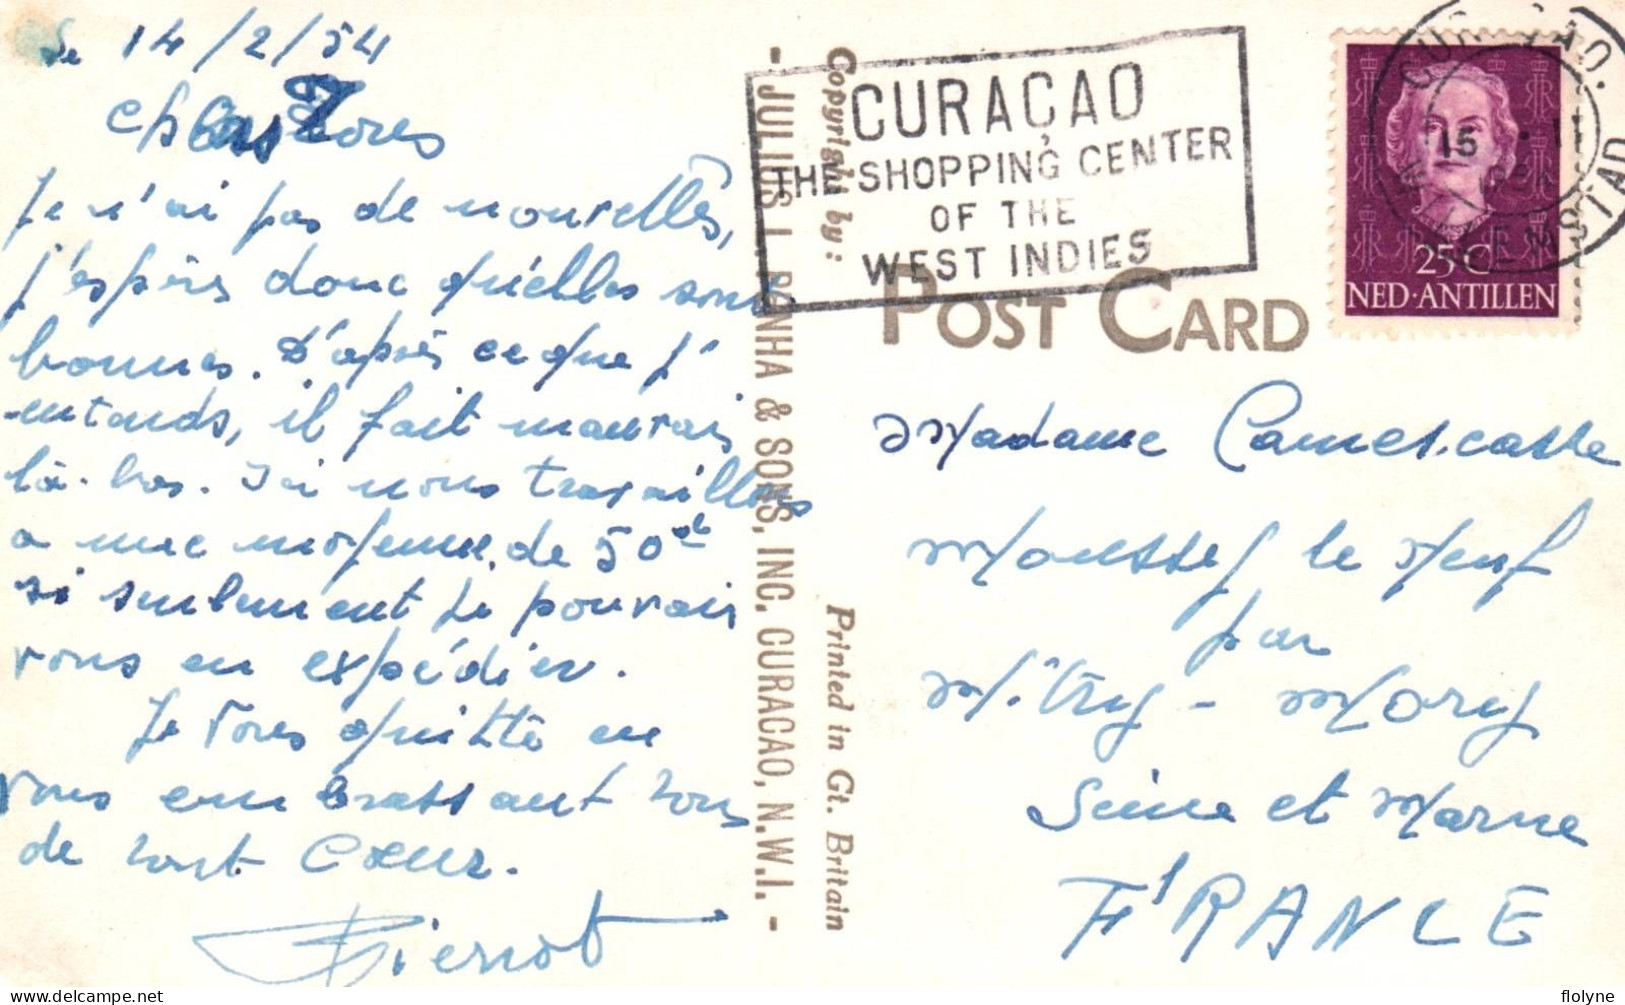 Le 14/2/54
Chers Tous
Je n'ai pas de nouvelles,
j'espère donc qu'elles sont
bonnes. D'après ce que j'
entends, il fait mauvais
là-bas. Ici nous travaillons
a une moyenne de 50°
si seulement je pouvais
vous en expédier.
Je vous quitte en
vous embrassant tous
de tout Cœur.
Pierrot
- JULIUS L. PENHA & SONS, INC. CURACAO, N.W.I. -
Copyright by:
Printed in Gt. Britain
CURAÇAO
THE SHOPPING CENTER
OF THE
WEST INDIES
POST CARD
CURACAO.
15 II
WILLEMSTAD
25 C
NED·ANTILLEN
Madame Camescasse
Moussy le Neuf
par
Mitry-Mory
Seine et Marne
FRANCE
flolyne